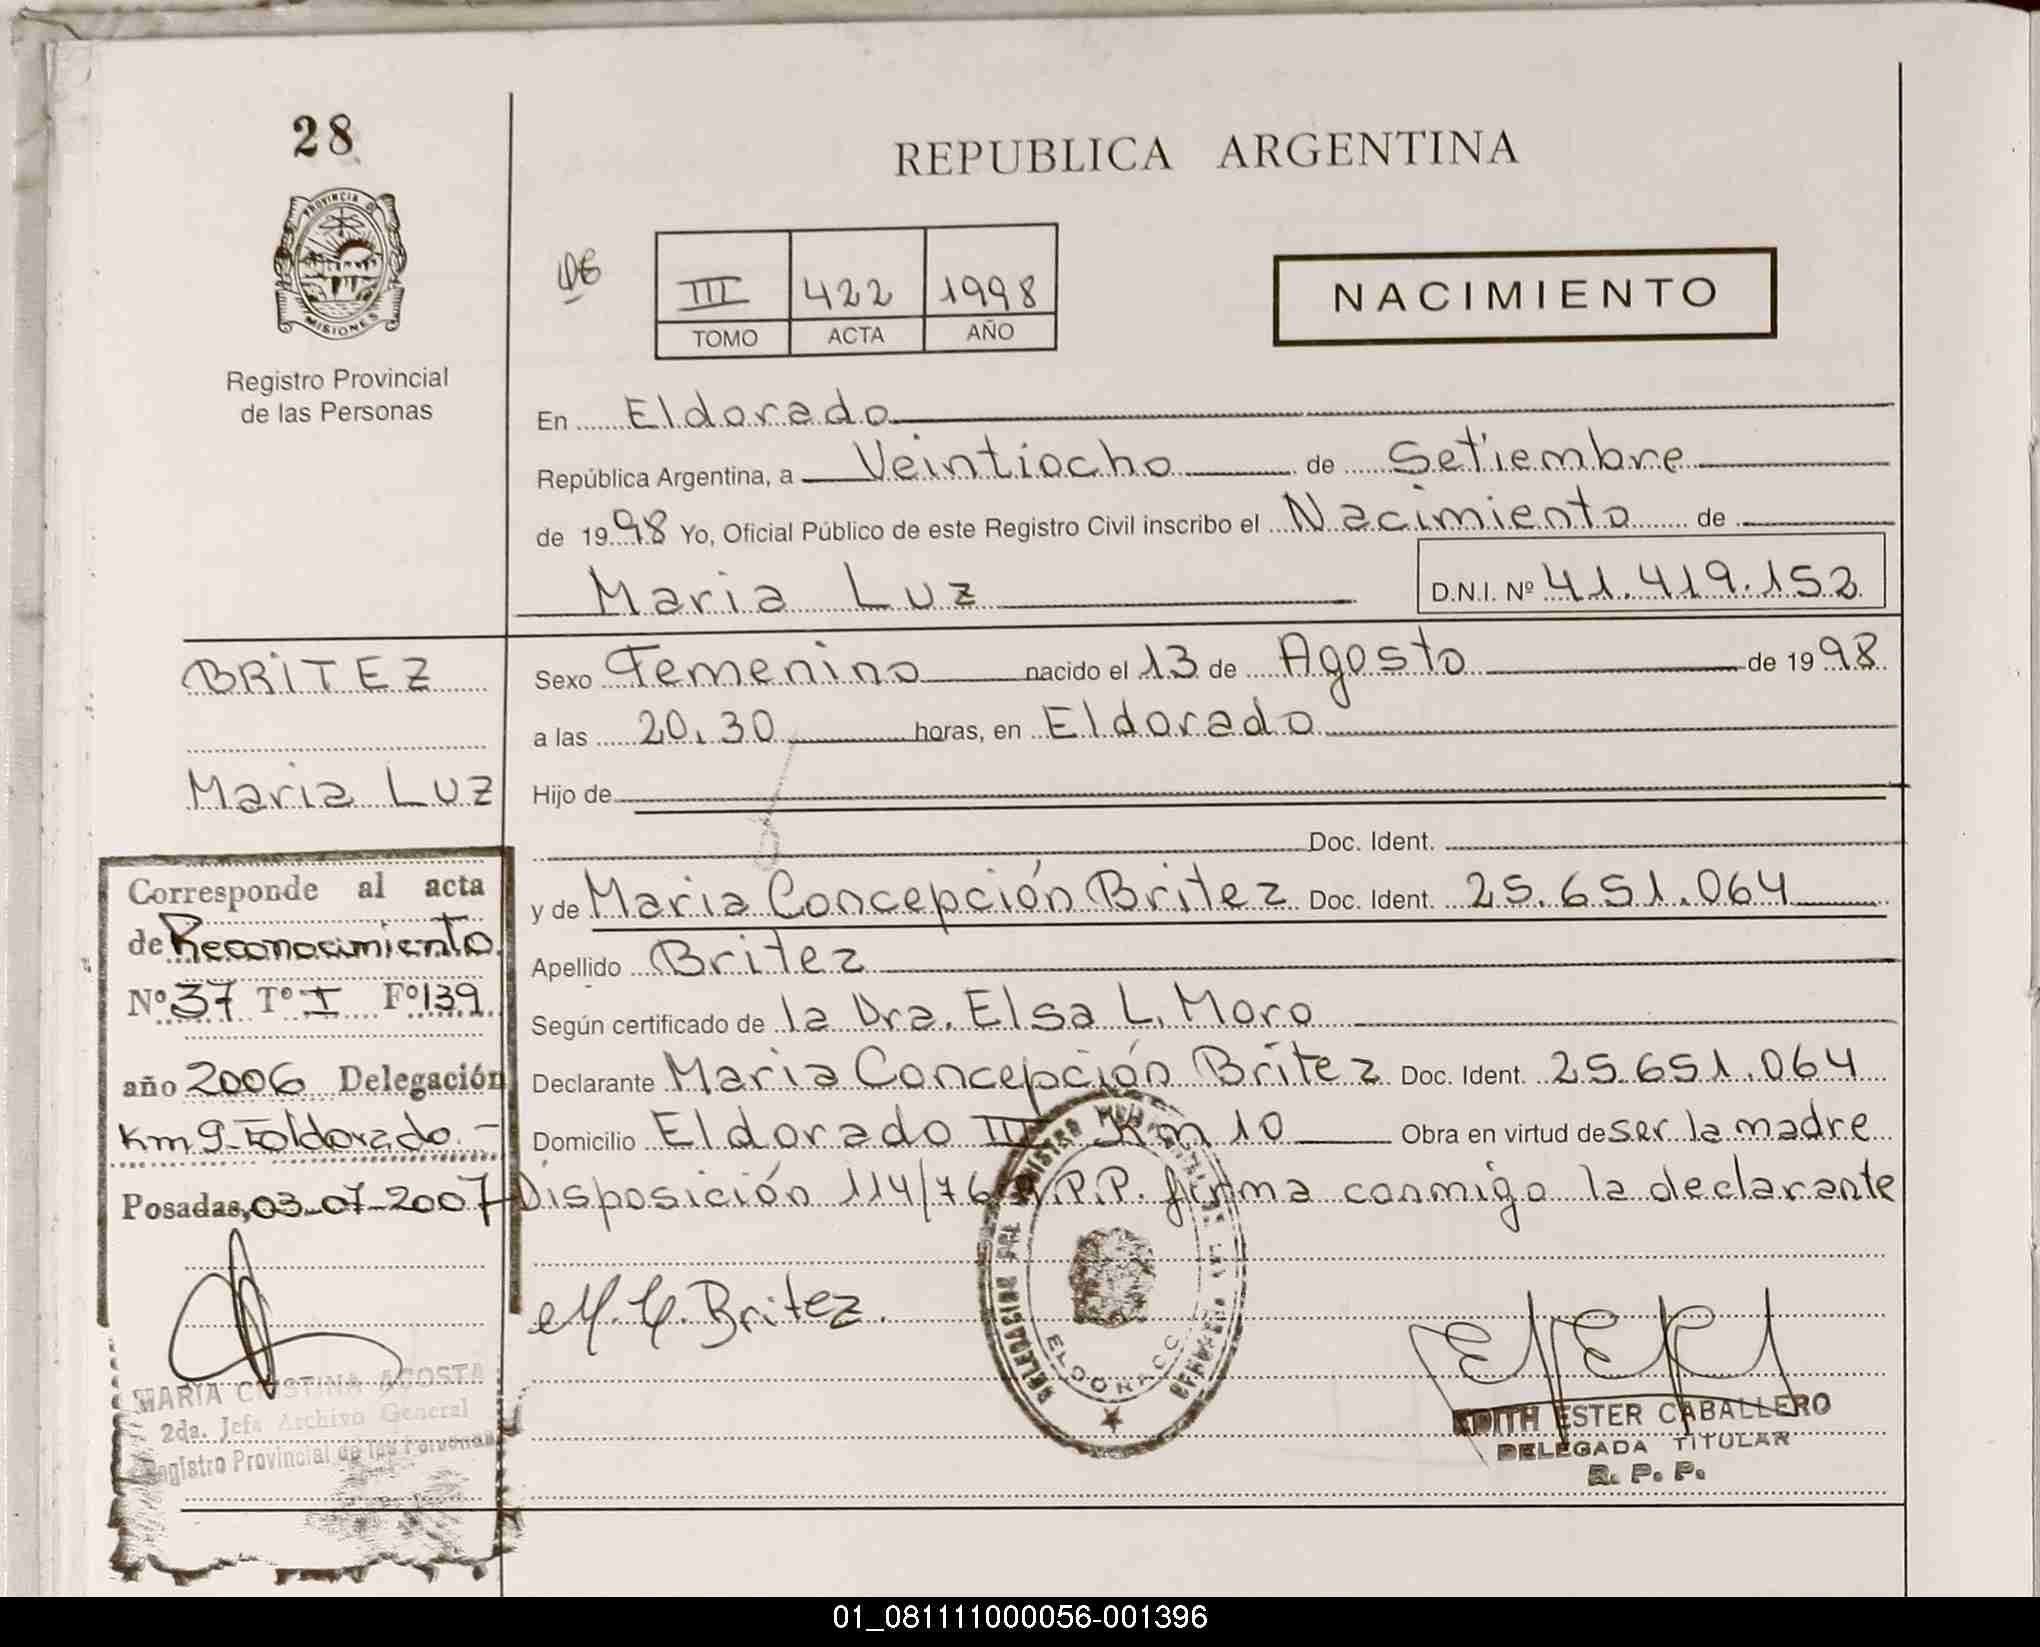 28
PROVINCIA D
MISIONES
Registro Provincial
de las Personas
REPUBLICA ARGENTINA
III 422 1998
TOMO ACTA AÑO
NACIMIENTO
En Eldorado
República Argentina, a Veintiocho de Setiembre
de 1998 Yo, Oficial Público de este Registro Civil inscribo el Nacimiento de
Maria Luz D.N.I. Nº 41.419.152
BRITEZ
Maria Luz
Sexo Femenino nacido el 13 de Agosto de 1998
a las 20,30 horas, en Eldorado
Hijo de
Doc. Ident.
y de Maria Concepción Britez Doc. Ident. 25.651.064
Apellido Britez
Según certificado de la Dra. Elsa L. Moro
Declarante Maria Concepción Britez Doc. Ident. 25.651.064
Domicilio Eldorado III Km 10 Obra en virtud de ser la madre
Disposición 114/76 R.P.P. firma conmigo la declarante
Corresponde al acta
de Reconocimiento
Nº 37 Tº I Fº 139
año 2006 Delegación
Km 9-Eldorado.-
Posadas, 03-07-2007
MARIA CRISTINA ACOSTA
2da. Jefa Archivo General
Registro Provincial de las Personas
M. C. Britez.
DELEGACION DEL REGISTRO DE LAS
ELDORADO
EDITH ESTER CABALLERO
DELEGADA TITULAR
R. P. P.
01_081111000056-001396